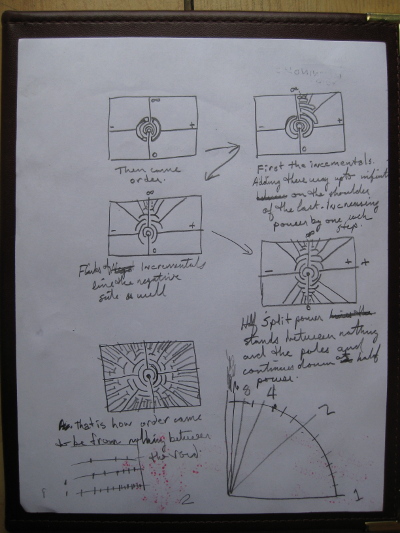 ∞
- +
0
Then came
order.
∞
- +
0
First the incrementals.
Adding there way up to infinit
on the shoulder
of the last. Increasing
power by one each
step.
∞
- +
0
Flanks of Incrementals
line the negative
side as well
∞
- + +
0
Split power
stands between nothing
and the poles and
continues down half
power.
That is how order came
to be from nothing between
the void.
8 4 2
1
2